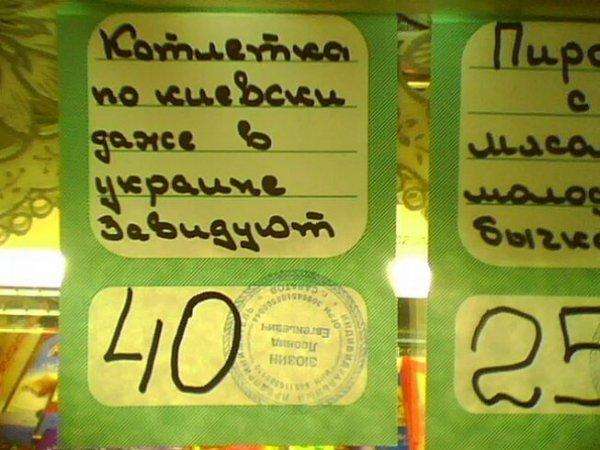 Котлетка
по киевски
даже в
украине
завидуют
40
Пиро
с
мяса
молод
бычк
25
ЗЮЗИН
Леонид
Евгеньевич